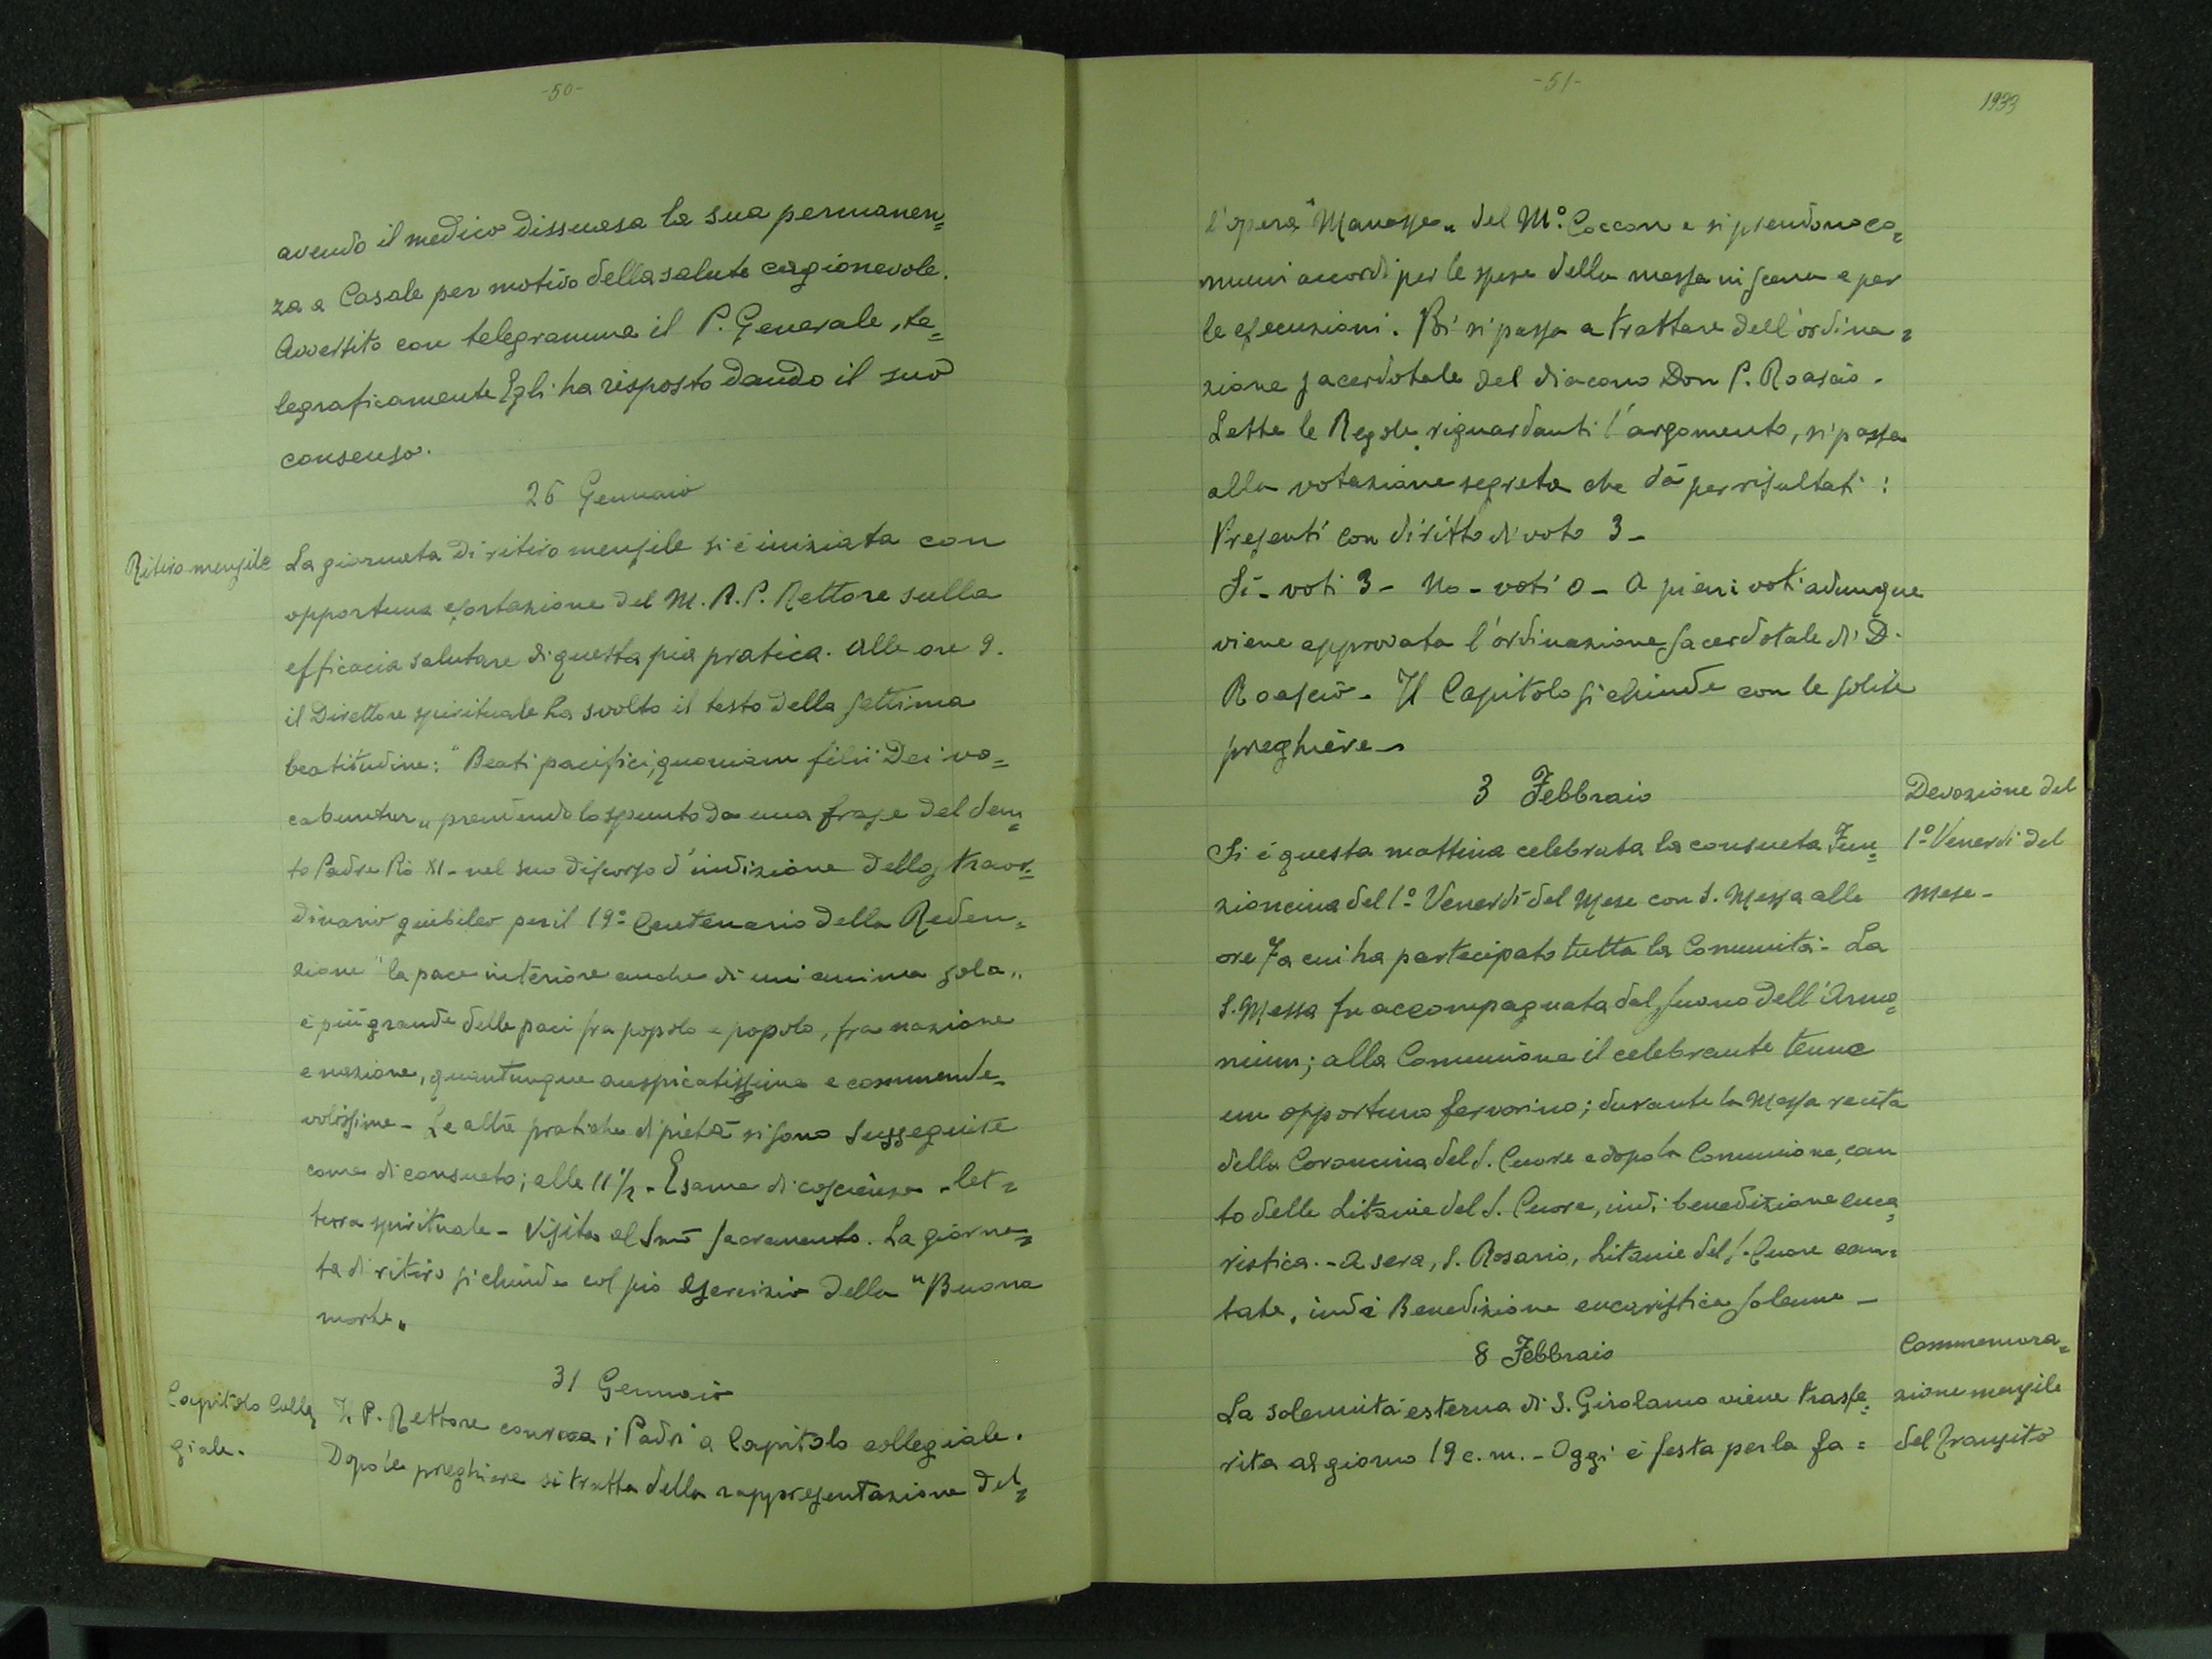 -50-
avendo il medico dissuasa la sua permanen=
za a Casale per motivo della salute cagionevole.
Avvertito con telegramma il P. Generale, te=
legraficamente Egli ha risposto dando il suo
consenso.
26 Gennaio
Ritiro mensile
La giornata di ritiro mensile si è iniziata con
opportuna esortazione del M. R. P. Rettore sulla
efficacia salutare di questa pia pratica. Alle ore 9.
il Direttore spirituale ha svolto il testo della settima
beatitudine: "Beati pacifici, quoniam filii Dei vo=
cabuntur" prendendo lo spunto da una frase del San=
to Padre Pio XI - nel suo discorso d'indizione dello straor=
dinario giubileo per il 19° Centenario della Reden=
zione "la pace interiore anche di un'anima sola"
è più grande delle paci fra popolo e popolo, fra nazione
e nazione, quantunque auspicatissime e commende=
volissime - Le altre pratiche di pietà si sono susseguite
come di consueto; alle 11 1/2 - Esame di coscienza - let=
tura spirituale - Visita al Smo Sacramento. La giorna=
ta di ritiro si chiude col pio esercizio della "Buona
morte"
31 Gennaio
Capitolo Colle=
giale.
Il P. Rettore convoca i Padri a Capitolo collegiale.
Dopo le preghiere si tratta della rappresentazione del=
-51-
1933
l'opera "Manasse" del M.° Coccon e si prendono co=
muni accordi per le spese della messa in scena e per
le esecuzioni. Poi si passa a trattare dell'ordina=
zione sacerdotale del diacono Don P. Roascio.
Lette le Regole riguardanti l'argomento, si passa
alla votazione segreta che dà per risultati:
Presenti con diritto di voto 3 -
Sì - voti 3 - No - voti 0 - A pieni voti adunque
viene approvata l'ordinazione sacerdotale di D.
Roascio - Il Capitolo si chiude con le solite
preghiere -
3 Febbraio
Devozione del
1° Venerdì del
mese -
Si è questa mattina celebrata la consueta Fun=
zioncina del 1° Venerdì del Mese con S. Messa alle
ore 7 a cui ha partecipato tutta la Comunità. La
S. Messa fu accompagnata dal suono dell'Armo=
nium; alla Comunione il celebrante tenne
un opportuno fervorino; durante la Messa recita
della Coroncina del S. Cuore e dopo la Comunione, can
to delle Litanie del S. Cuore, indi benedizione euca=
ristica. - A sera, S. Rosario, Litanie del S. Cuore can=
tate, indi Benedizione eucaristica solenne -
8 Febbraio
Commemora=
zione mensile
del Transito
La solennità esterna di S. Girolamo viene trasfe=
rita al giorno 19 c. m. - Oggi è festa per la fa=